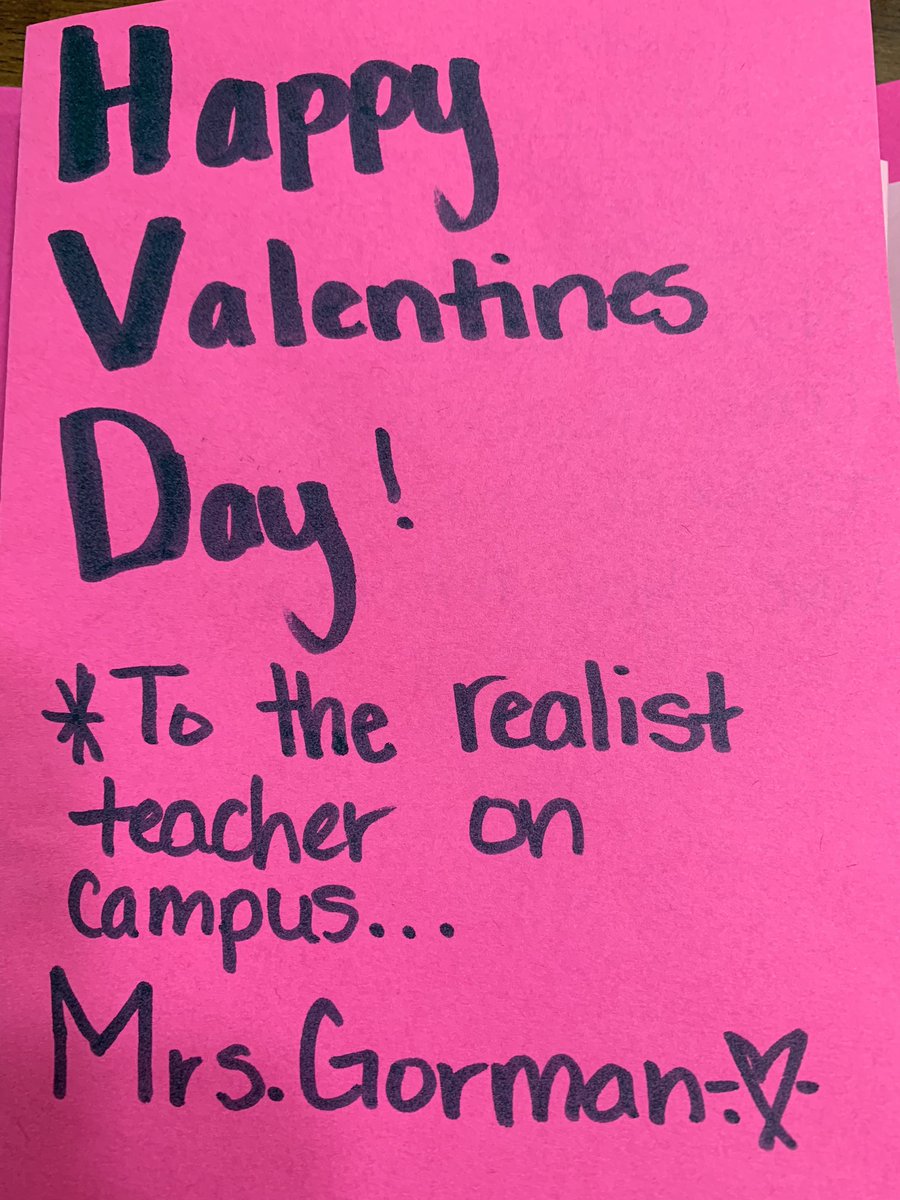 Happy
Valentines
Day!
*To the realist
teacher on
campus...
Mrs. Gorman